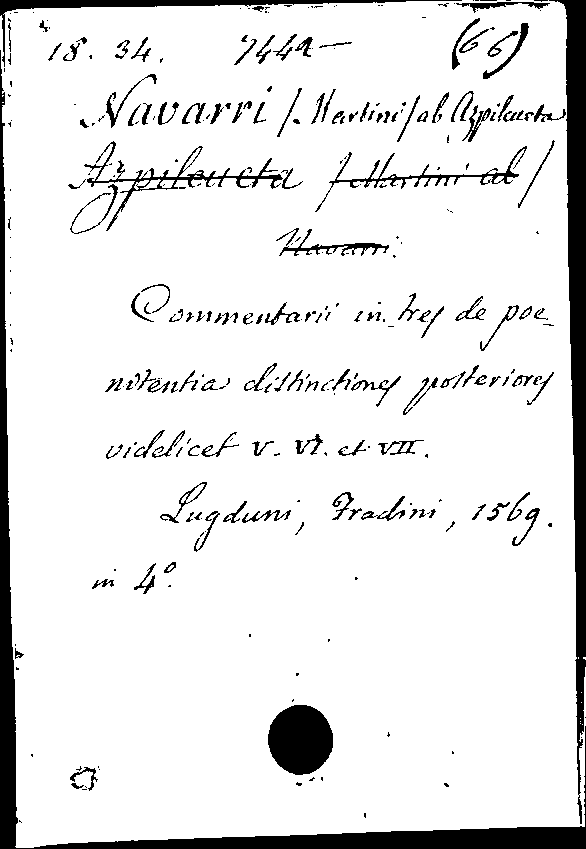 18. 34. 7442— (66)
Navarri / Martini / ab Azpilcueta
Azpilcueta / Martini ab /
Navarri.
Commentarii in tres de poe-
nitentia distinctiones posteriores
videlicet V. VI. et VII.
Lugduni, Fradini, 1569.
in 4º.